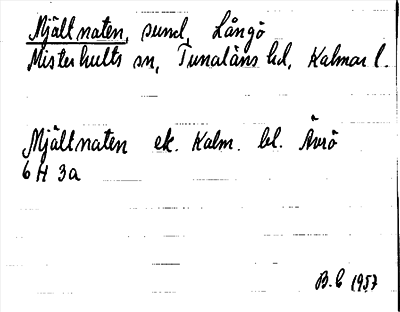 Mjältnaten, sund, Långö
Misterhults sn, Tunaläns hd, Kalmar l.
Mjältnaten ek. Kalm. bl. Ävrö
6 H 3a
B.C 1957